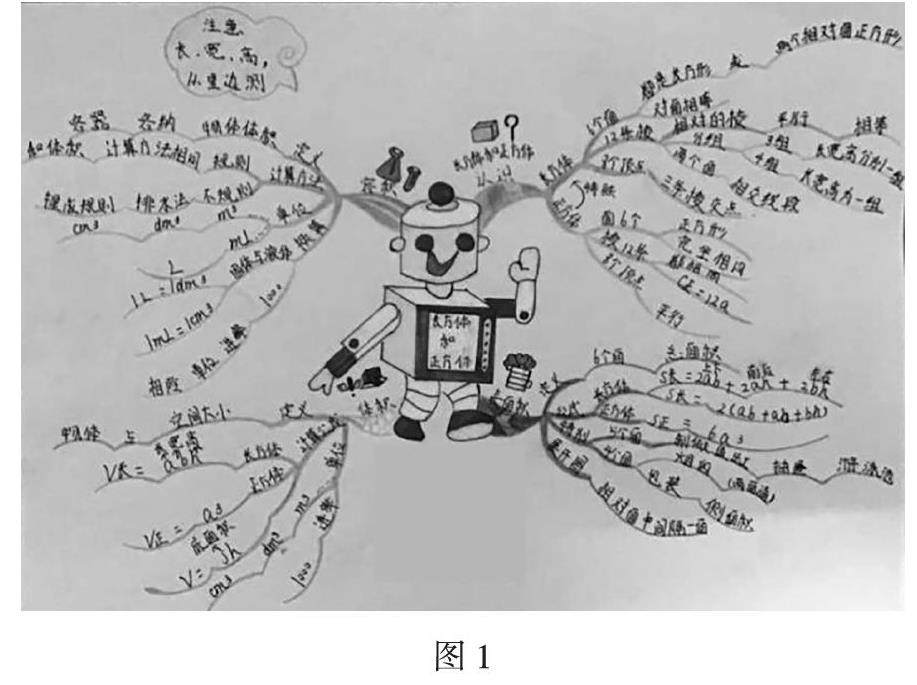 注意
长、宽、高，
从里边测
容器 容纳 物体体积 定义
和体积 计算方法相同 规则 计算方法
捏成规则 排水法 不规则
cm³ dm³ m³ 单位
L mL
1L=1dm³ 固体与液体 换算
1mL=1cm³
相邻 单位 进率 1000
容积
长方体和正方体
认识
长方体
6个面 都是长方形 或 两个相对面正方形
对面相等
12条棱 相对的棱 平行 相等
分组 3组 长宽高分别一组
两个面 4组 长宽高为一组
相交线段
8个顶点 三条棱交点
特殊
正方体
面6个 正方形
完全相同
棱12条 都相同
CE=12a
8个顶点
平行
长方体
和
正方体
体积
物体 占 空间大小 定义
V长=abh 长方体 计算公式
V正=a³ 正方体
底面积
V=Sh
cm³ dm³ m³ 单位
1000 进率
定义 6个面 总面积
公式 长方体 S长=2ab+2ah+2bh
前后
S长=2(ab+ah+bh)
正方体 S正=6a³
特别
4个面 烟囱
包装 侧面积
抽屉 游泳池
展开图 相对面中间隔一面
图1